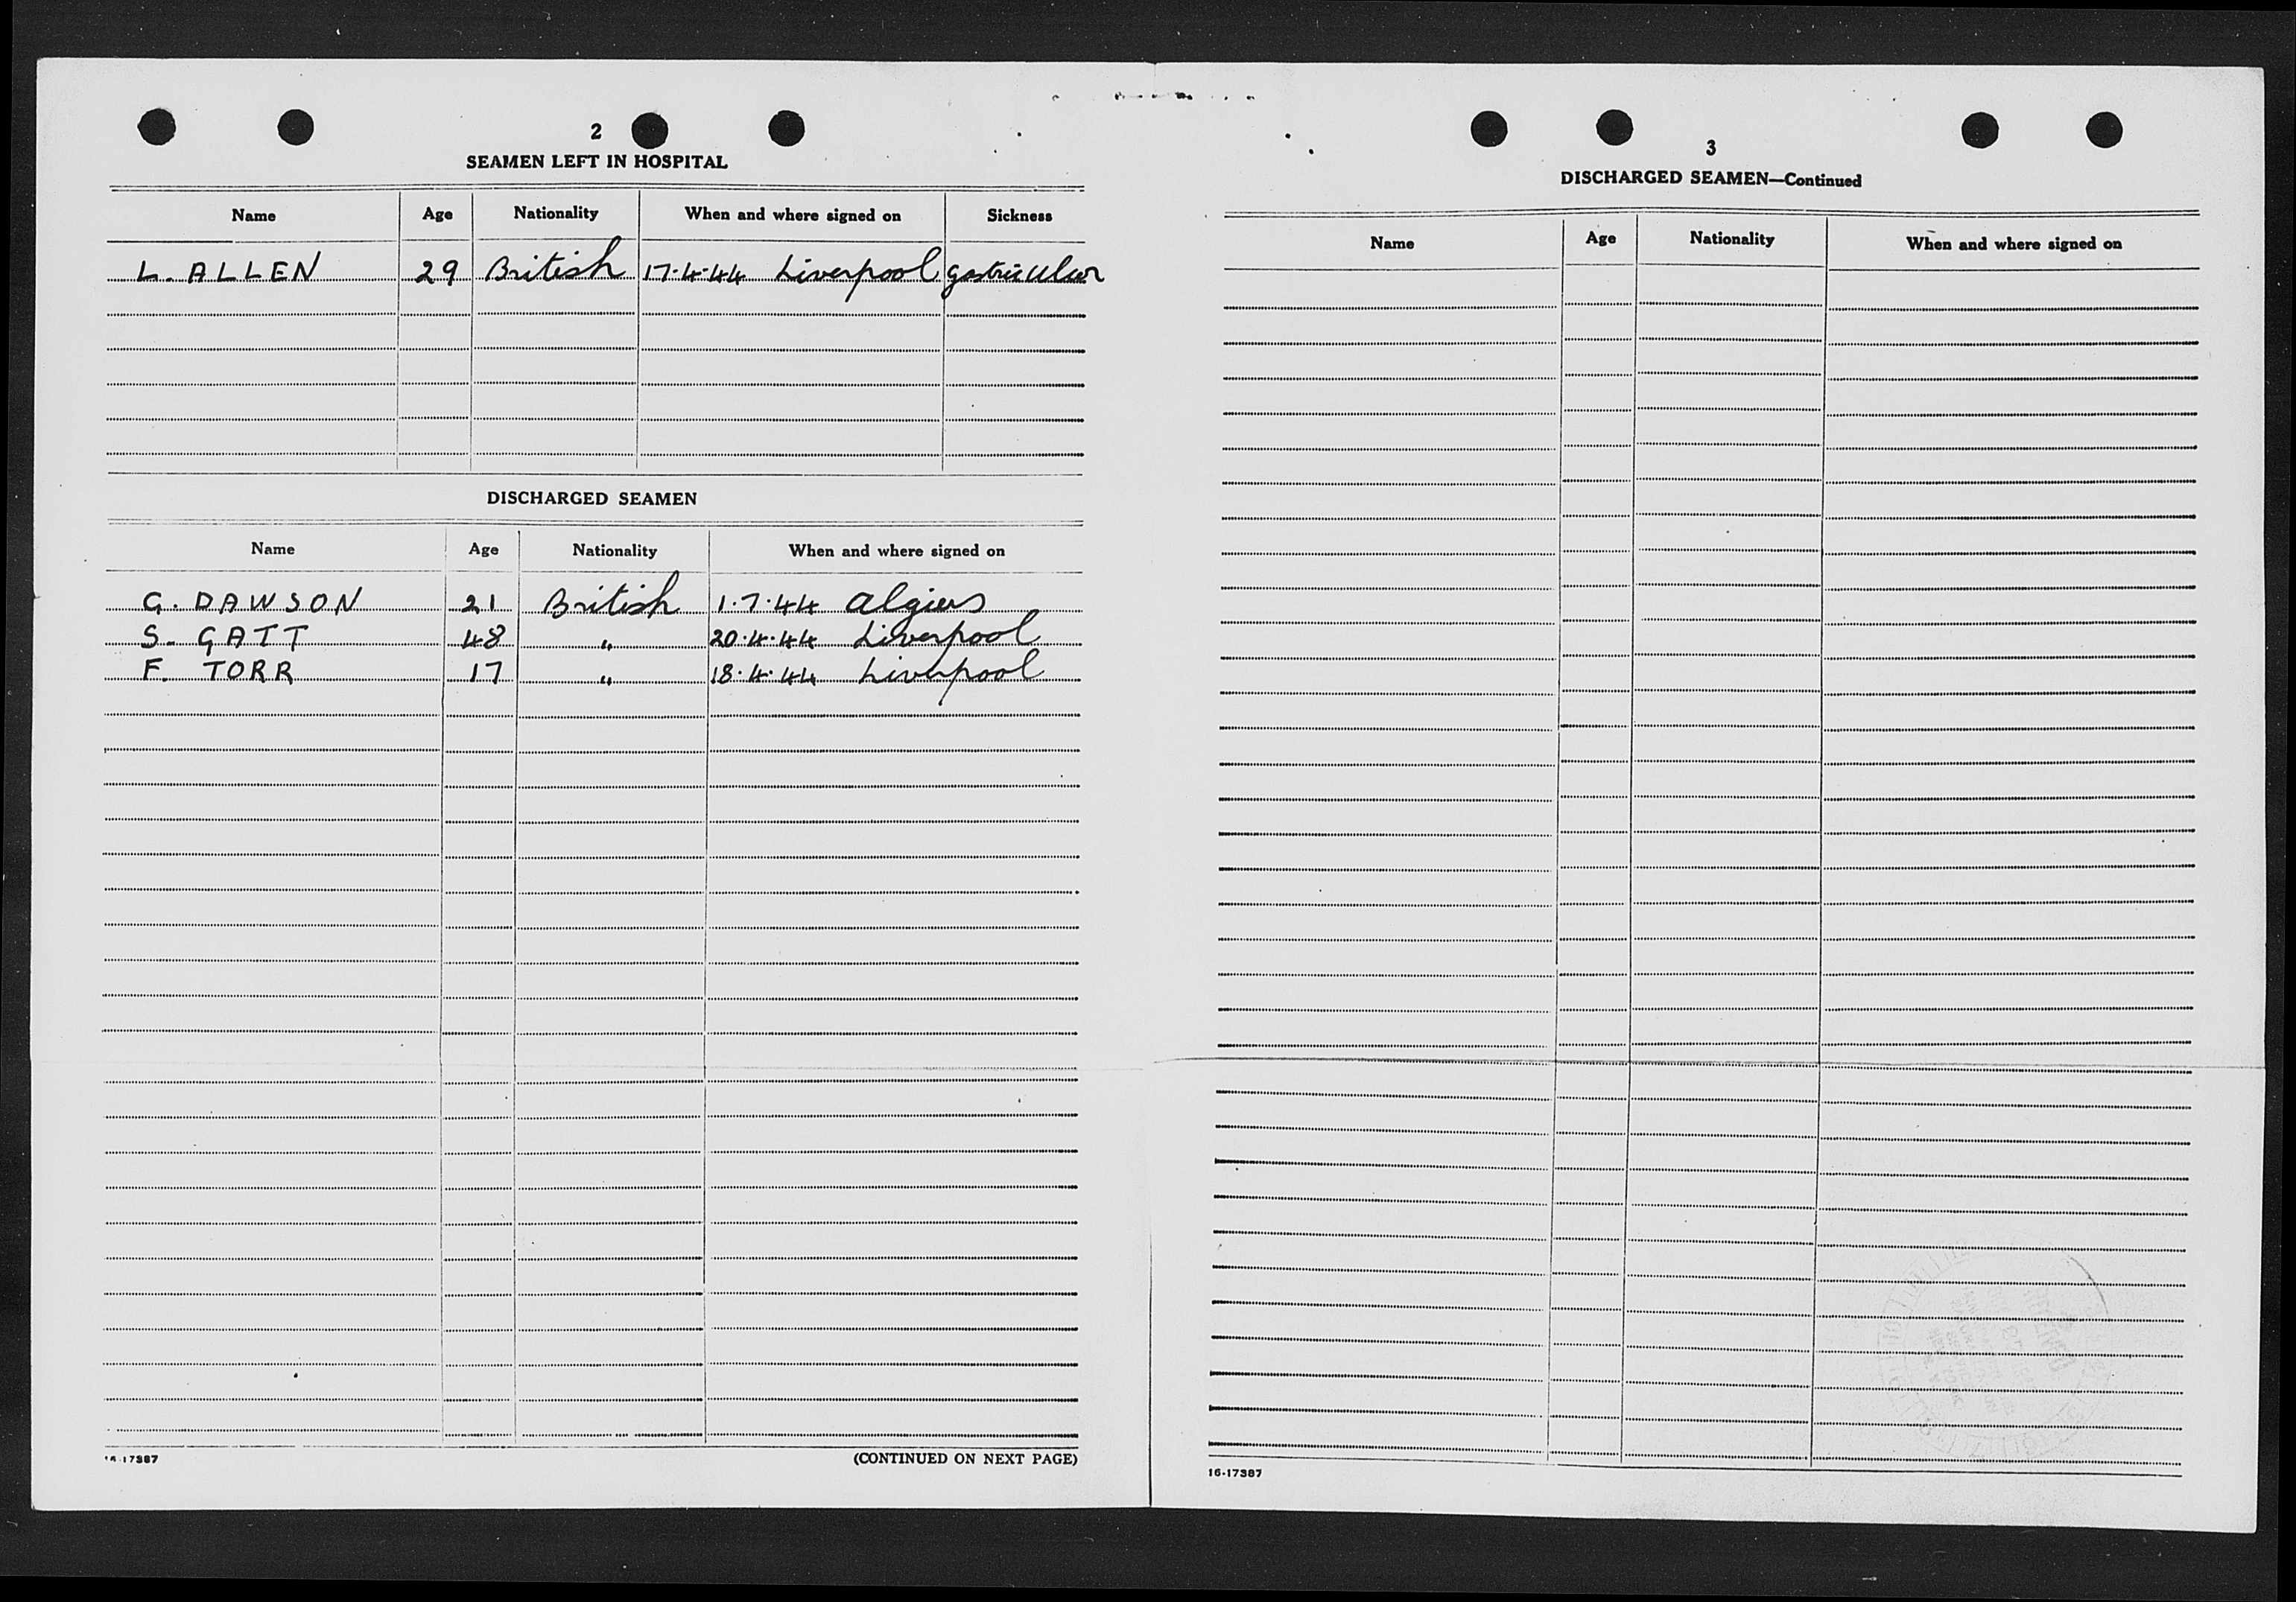 2
SEAMEN LEFT IN HOSPITAL
Name Age Nationality When and where signed on Sickness
L. ALLEN 29 British 17.4.44 Liverpool gastric ulcer
DISCHARGED SEAMEN
Name Age Nationality When and where signed on
G. DAWSON 21 British 1.7.44 Algiers
S. GATT 48 " 20.4.44 Liverpool
F. TORR 17 " 18.4.44 Liverpool
16-17387 (CONTINUED ON NEXT PAGE)
3
DISCHARGED SEAMEN—Continued
Name Age Nationality When and where signed on
16-17387